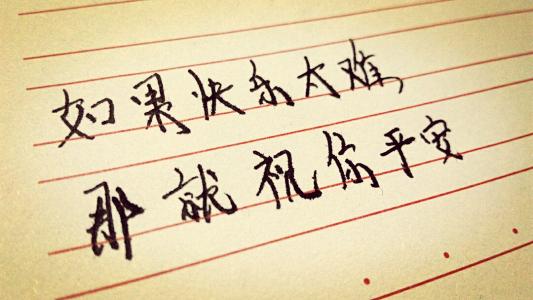 如果快乐太难,
那就祝你平安